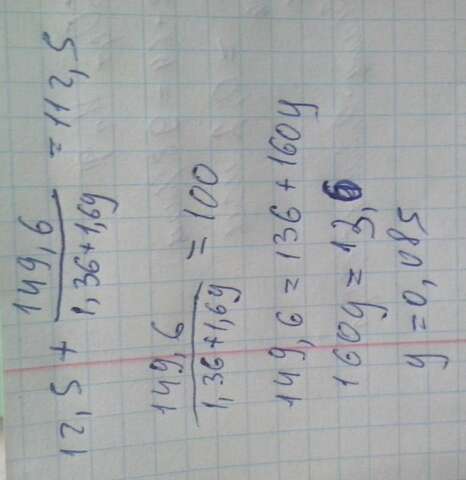 12,5 + 149,6 / 1,36+1,6y = 112,5
149,6 / 1,36+1,6y = 100
149,6 = 136 + 160y
160y = 13,6
y = 0,085